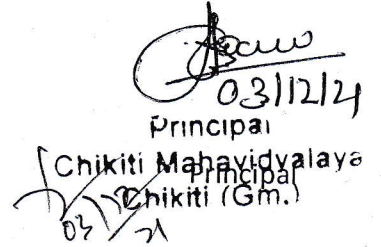 03/12/21
Principal
Chikiti Mahavidyalaya
Principal
Chikiti (Gm.)
03/12
21